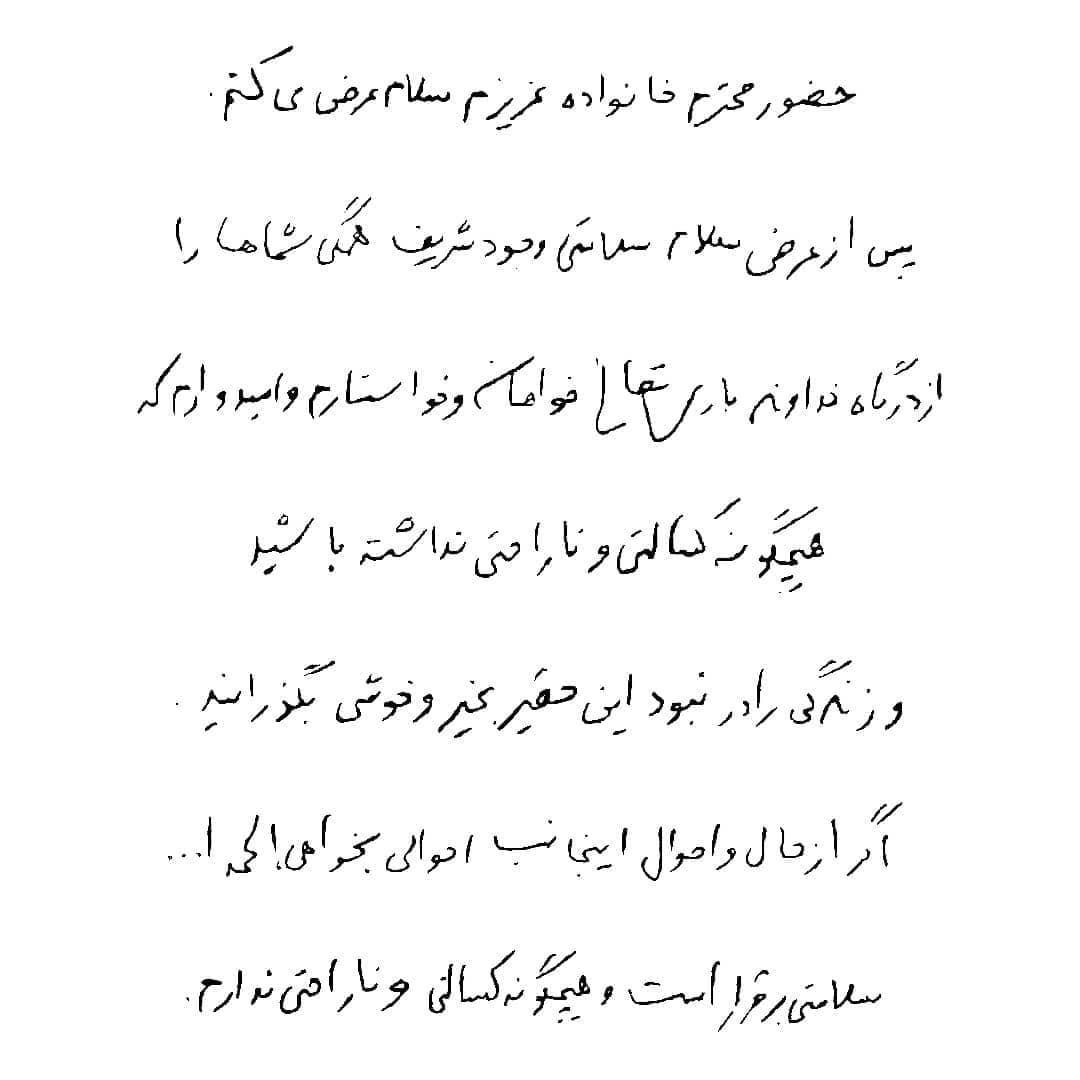 حضور محترم خانواده عزیزم سلام عرض می کنم.
پس از عرض سلام سلامتی وجود شریف همگی شماها را
از درگاه خداوند باری تعالی خواهان و خواستارم و امیدوارم که
هیچگونه کسالتی و ناراحتی نداشته باشید
و زندگی را در نبود این حقیر بخیر و خوشی بگذرانید.
اگر از حال و احوال اینجانب احوالی بخواهی! الحمد ا...
سلامتی برقرار است و هیچگونه کسالتی و ناراحتی ندارم.